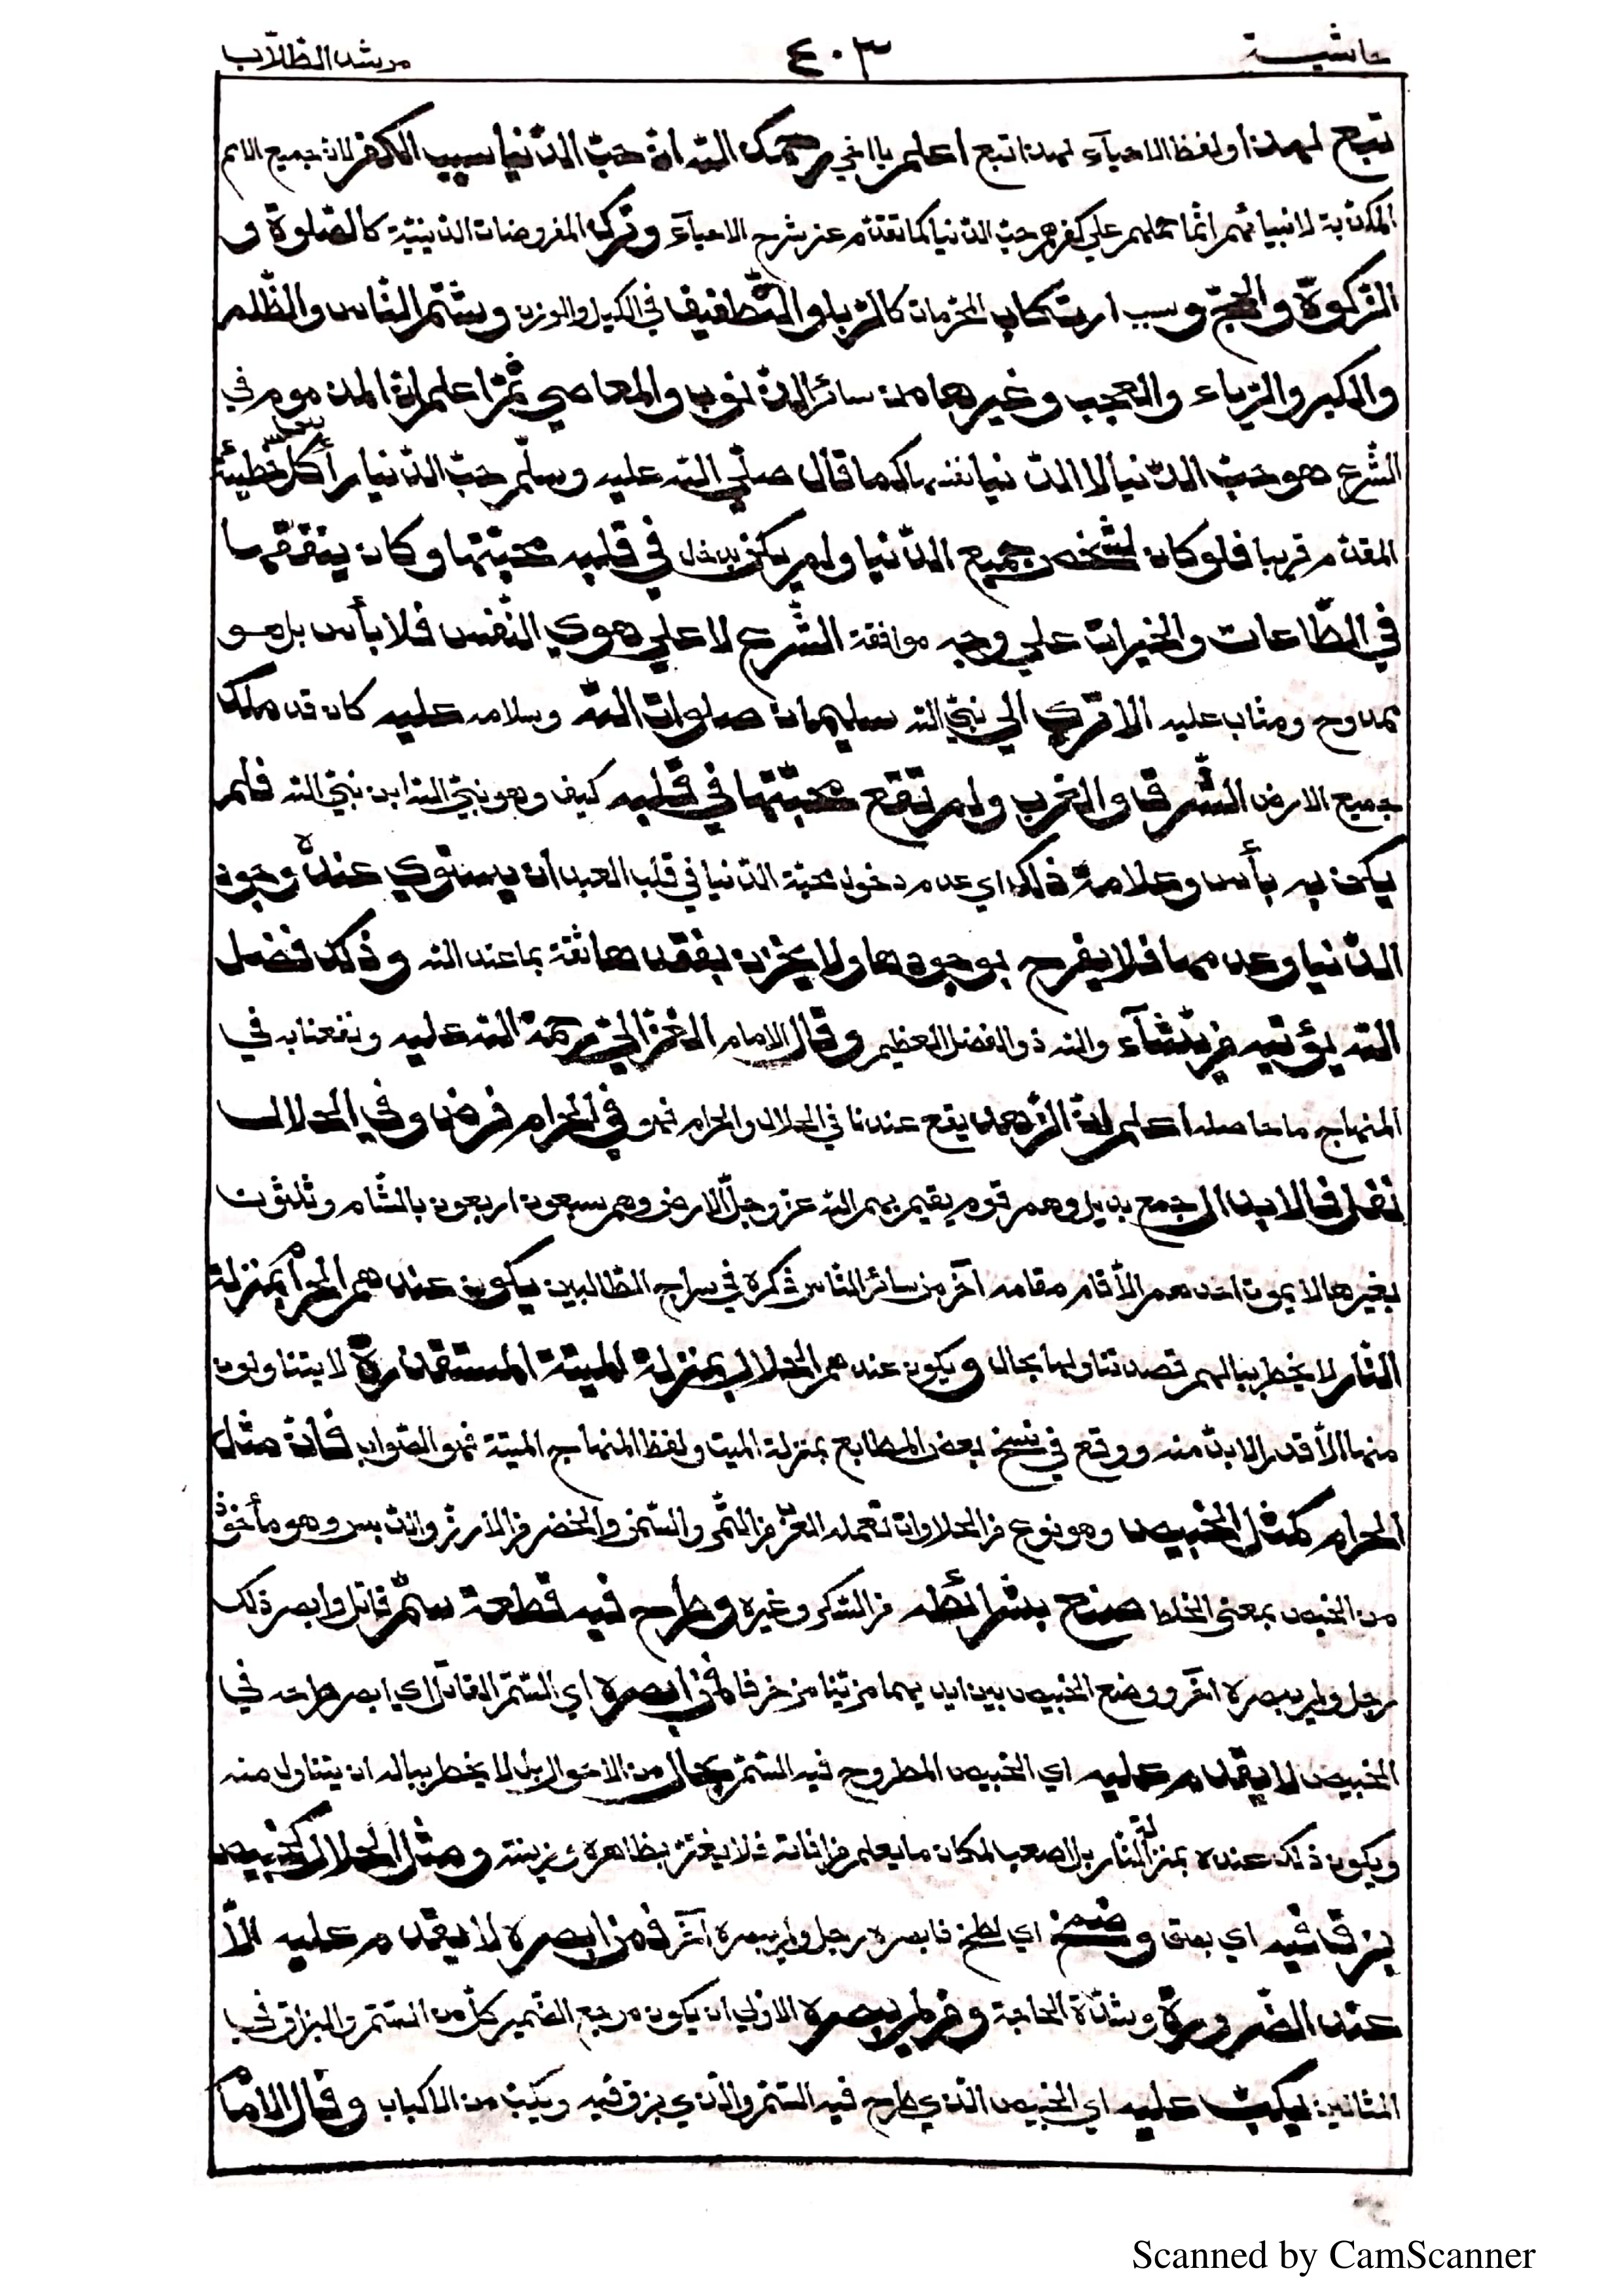 حاشية ٤٠٣ مرشد الطّلّاب
تبع لهذا ولفظ الاحياء لهذا تبع اعلم يا اخي رحمك الله انّ حبّ الدّنيا سبب الكفر لانّ جميع الامم
المكذّبة لانبيائهم انّما حملهم علي كفرهم حبّ الدّنيا كما تقدّم عن شرح الاحيآء وترك المفروضات الدّينيّة كالصّلوة و
الزّكوة والحجّ وسبب ارتكاب المحرّمات كالرّبا والتّطفيف في الكيل والوزن وشتم النّاس والظّلم
والكبر والرّياء والعجب وغيرها من سائر الذّنوب والمعاصي ثمّ اعلم انّ المذموم في
الشّرع هو حبّ الدّنيا لا الدّنيا نفسها كما قال صلّي الله عليه وسلّم حبّ الدّنيا رأس كلّ خطيئة
المقدّم قريبا فلو كان لشخص جميع الدّنيا ولم يكن يدخل في قلبه محبّتها وكان ينفقها
في الطّاعات والخيرات علي وجه موافقة الشّرع لا علي هوي النّفس فلا بأس بل هو
ممدوح ومثاب عليه الا تري الي نبيّ الله سليمان صلوات الله وسلامه عليه كان قد ملك
جميع الارض الشّرق والغرب ولم تقع محبّتها في قلبه كيف وهو نبيّ الله ابن نبيّ الله فلم
يكن به بأس وعلامة ذلك اي عدم دخول محبّة الدّنيا في قلب العبد ان يستوي عنده وجود
الدّنيا وعدمها فلا يفرح بوجودها ولا يحزن بفقدها ثقة بما عند الله وذلك فضل
الله يؤتيه من يشآء والله ذو الفضل العظيم وقال الامام الغزاليّ رحمة الله عليه ونفعنا به في
المنهاج ما حاصله اعلم انّ الزّهد يقع عندنا في الحلال والحرام فهو في الحرام فرض وفي الحلال
نفل فالابدال جمع بديل وهم قوم يقيم بهم الله عزّ وجلّ الارض وهم سبعون اربعون بالشّام وثلثون
بغيرها لا يموت احدهم الّا قام مقامه آخر من سائر النّاس ذكره في سراج الطّالبين يكون عندهم الحرام بمنزلة
النّار لا يخطر ببالهم قصد تناولها بحال ويكون عندهم الحلال بمنزلة الميتة المستقذرة لا يتناولون
منها الّا قدر الا بدّ منه ووقع في نسخ بعض المطابع بمنزلة الميت ولفظ المنهاج الميتة فهو الصّواب فانّ مثل
الحرام كمثل الخبيص وهو نوع من الحلاوات تعمله العرب من التّمر والسّمن والحضر من الارز والدّبس وهو مأخوذ
من الخبص بمعني الخلط صنع بشرائطه من السّكر وغيره وطرح فيه قطعة سمّ قاتل وابصر ذلك
رجل ولم يبصره آخر ووضع الخبيص بين ايديهما مزيّنا مزخرفا فمن ابصره اي السّمّ القاتل اي ابصر طرحه في
الخبيص لا يقدم عليه اي الخبيص المطروح فيه السّمّ بحال من الاحوال بل لا يخطر بباله ان يتناول منه
ويكون ذلك عنده بمنزلة النّار بل اصعب لمكان ما يعلم من افاته فلا يغترّ بظاهره وزينته ومثل الحلال كخبيص
بزق فيه اي بصق وضمخ اي لطخ فابصره رجل ولم يبصره آخر فمن ابصره لا يقدم عليه الّا
عند الضّرورة وشدّة الحاجة ومن لم يبصره الاولي ان يكون مرجع الضّمير كلّ من السّمّ والبزاق في
المثالين يكبّ عليه اي الخبيص الّذي طرح فيه السّمّ والّذي بزق فيه ويكبّ من الاكباب وقال الامام
Scanned by CamScanner